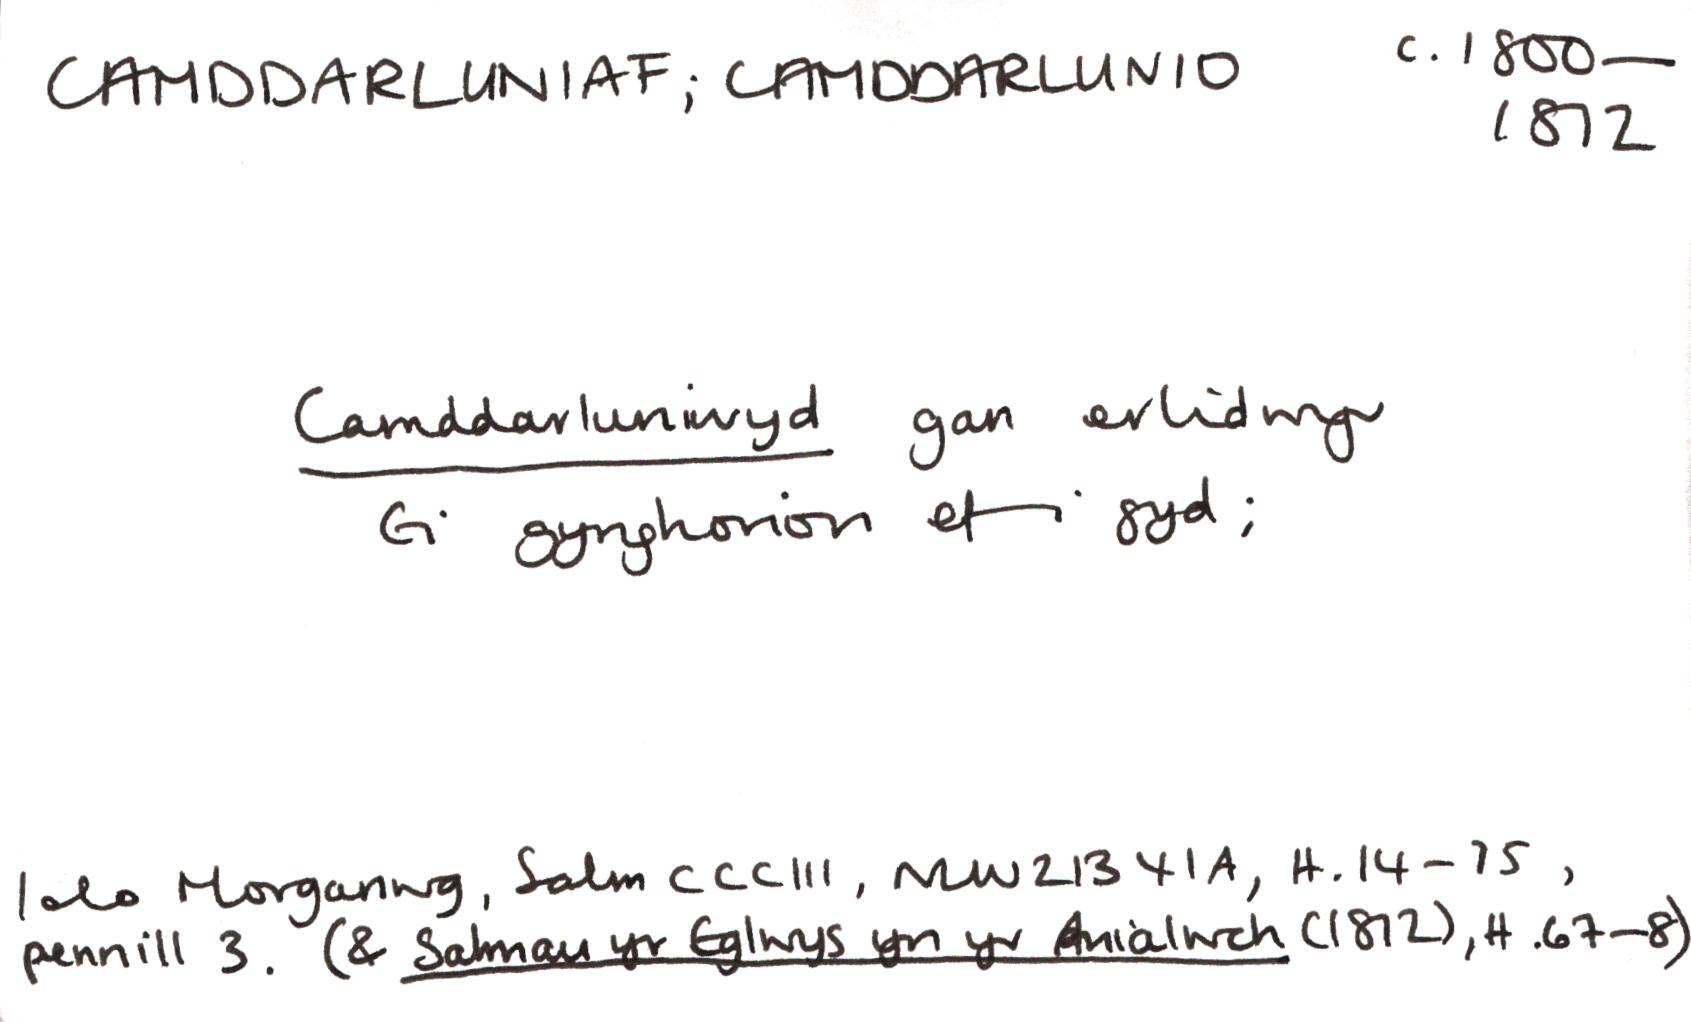 CAMDDARLUNIAF; CAMDDARLUNIO c. 1800—
1872
Camddarluniwyd gan erlidwyr
Ei gynghorion ef i gyd;
Iolo Morganwg, Salm CCCIII, NLW 21341A, tt. 14–15,
pennill 3. (& Salmau yr Eglwys yn yr Anialwch (1872), tt. 67–8)